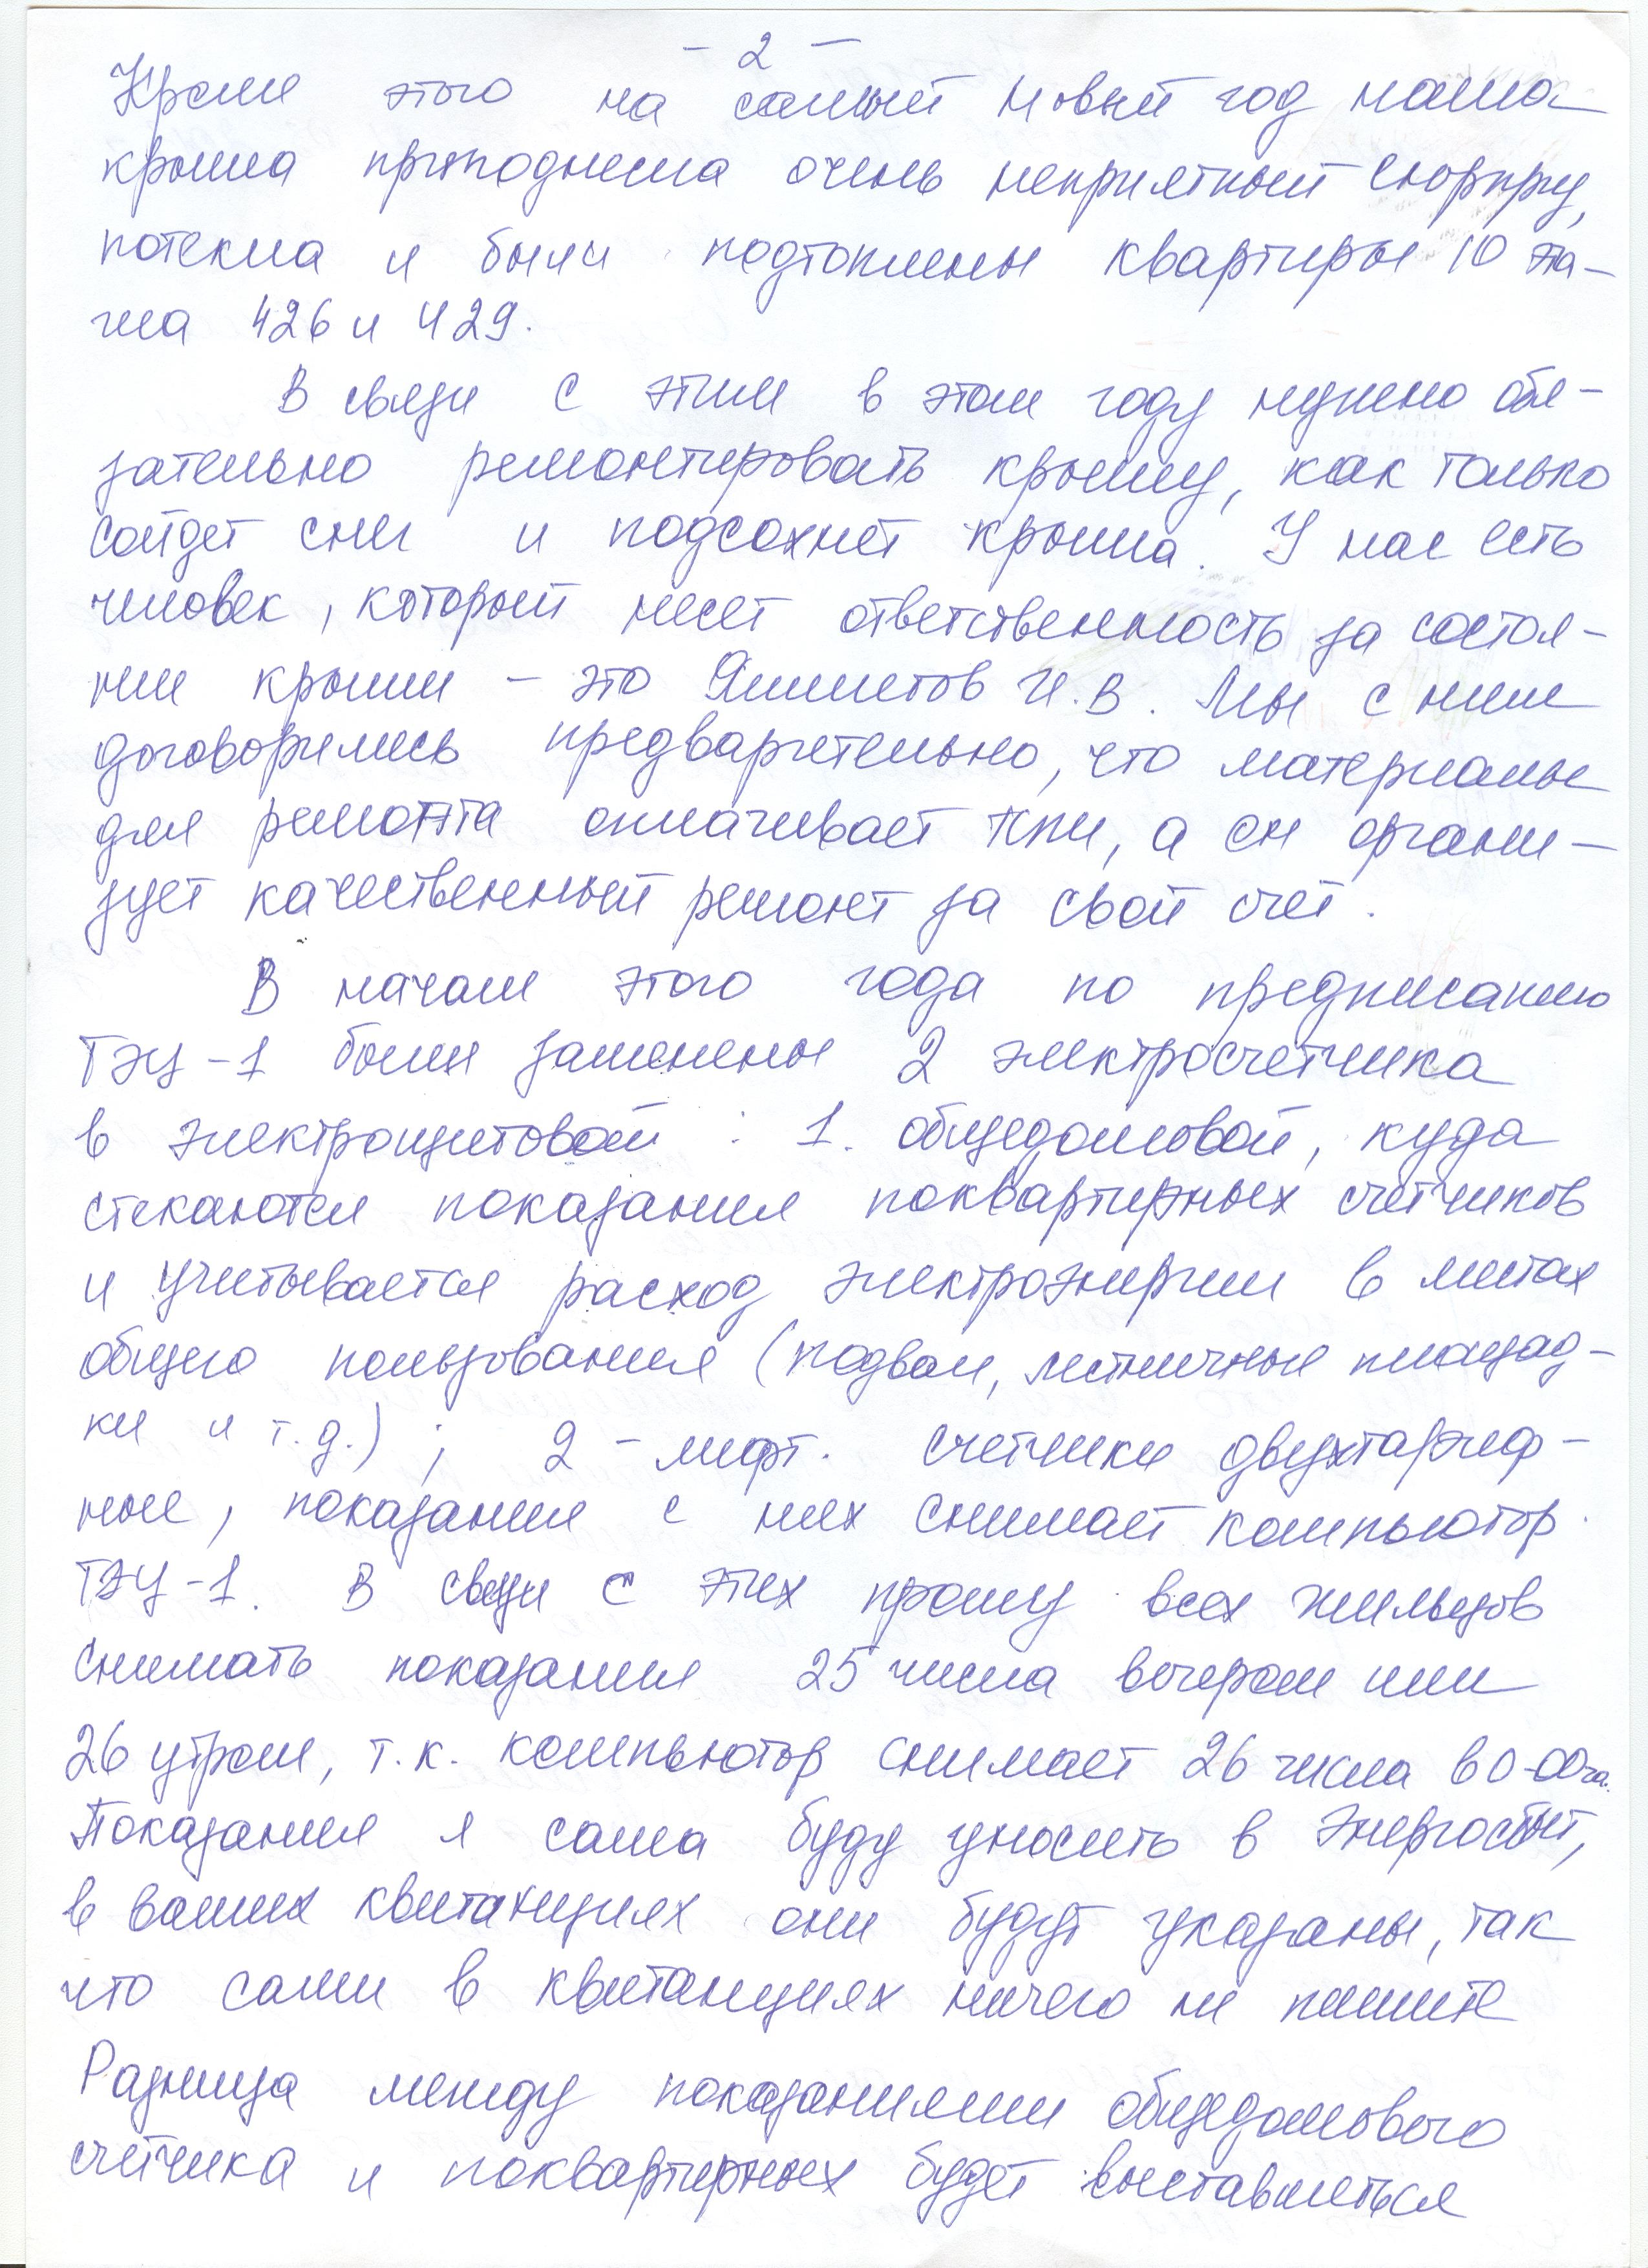 - 2 -
Кроме этого на самый новый год наша
крыша приподнесла очень неприятный сюрприз,
потекла и были подтоплены квартиры 10 эта-
жа 426 и 429.
В связи с этим в этом году нужно обя-
зательно ремонтировать крышу, как только
сойдет снег и подсохнет крыша. У нас есть
человек, который несет ответственность за состоя-
ние крыши - это И.В. Мы с ним
договорились предварительно, что материалы
для ремонта оплачивает ТПИ, а он органи-
зует качественный ремонт за свой счет.
В начале этого года по предписанию
ТЭЦ-1 были заменены 2 электросчетчика
в электрощитовой : 1. общедомовой, куда
стекаются показания поквартирных счетчиков
и учитывается расход электроэнергии в местах
общего пользования (подвал, лестничные площад-
ки и т.д.) ; 2 - лифт. Счетчики двухтариф-
ные, показания с них снимает компьютор
ТЭЦ-1. В связи с этих прошу всех жильцов
снимать показания 25 числа вечером или
26 утром, т.к. компьютор снимает 26 числа в 0-00 ча.
Показания я сама буду уносить в Энергосбыт,
в ваших квитанциях они будут указаны, так
что сами в квитанциях ничего не пишите
Разница между показаниями общедомового
счетчика и поквартирных будет выставляться